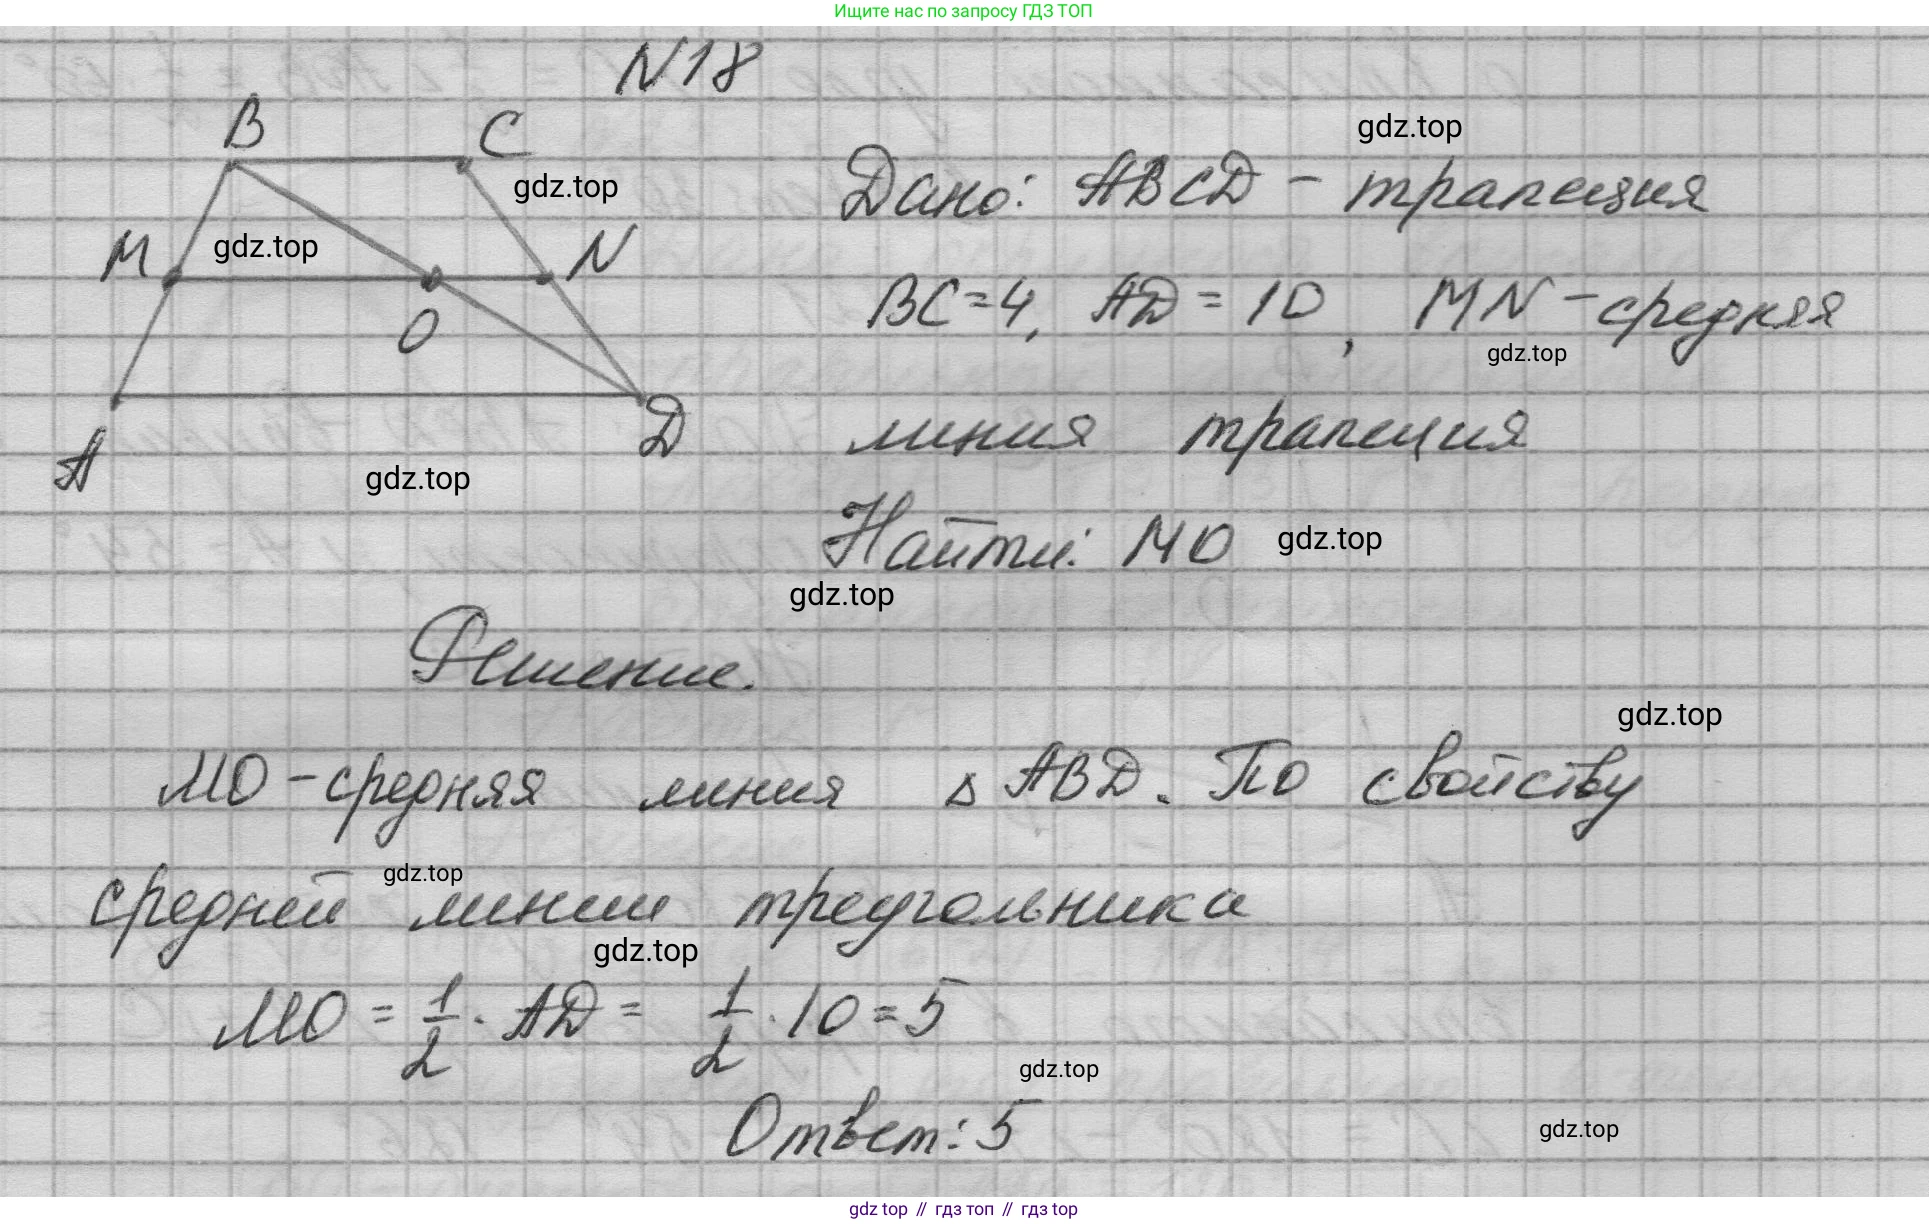 Ищите нас по запросу ГДЗ ТОП
N18
B
C
gdz.top
gdz.top
Дано: ABCD - трапеция
M
gdz.top
N
BC=4, AD = 10, MN - средняя
O
gdz.top
линия трапеция
A
D
gdz.top
Найти: MO
gdz.top
gdz.top
Решение.
gdz.top
MO - средняя линия △ ABD. По свойству
gdz.top
средней линии треугольника
gdz.top
MO = 1/2 · AD = 1/2 · 10 = 5
gdz.top
Ответ: 5
gdz.top
gdz top // гдз топ // гдз top